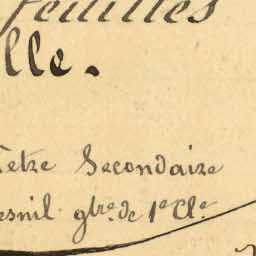 feuilles
lle.
etre Secondaire
esnil. gtre. de 1e Cle.